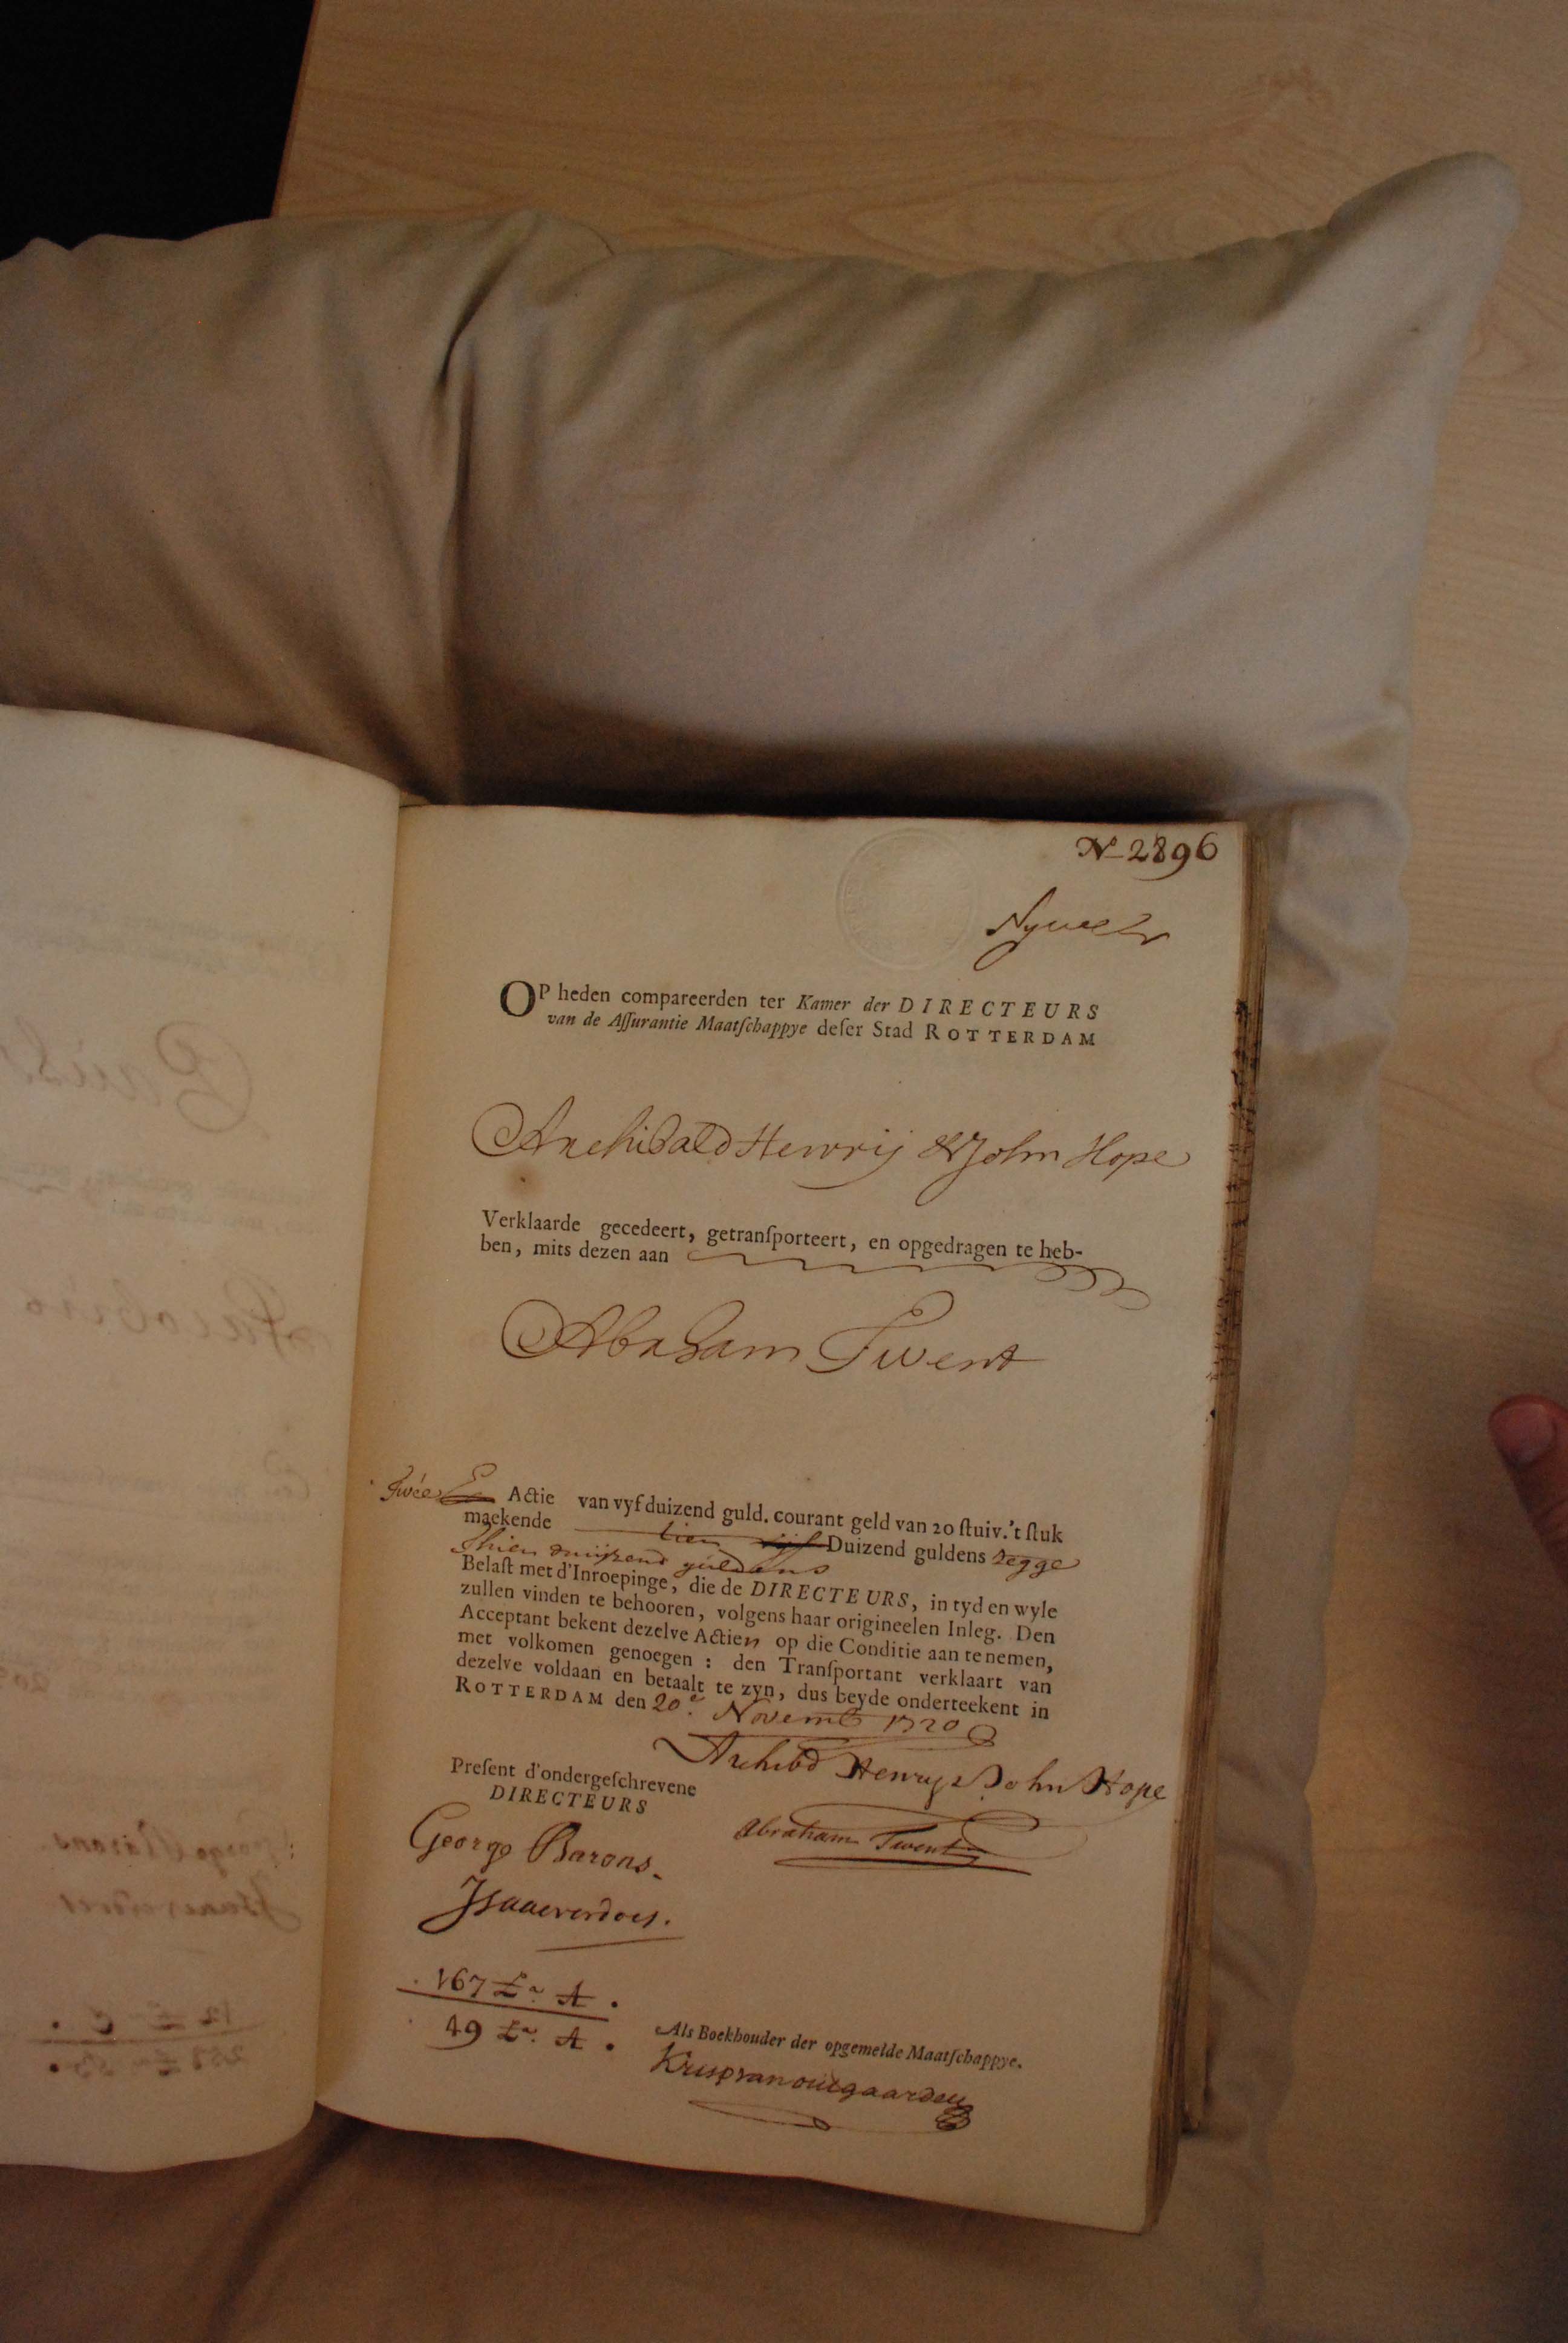 No 2896
OP heden compareerden ter Kamer der DIRECTEURS
van de Assurantie Maatschappye deser Stad ROTTERDAM
Archibald Henrij & John Hope
Verklaarde gecedeert, getransporteert, en opgedragen te heb-
ben, mits dezen aan
Abraham Twent
Twée Actie van vyf duizend guld. courant geld van 20 stuiv. 't stuk
maekende tien vijf Duizend guldens zegge
Thien duijzend guldens
Belast met d'Inroepinge, die de DIRECTEURS, in tyd en wyle
zullen vinden te behooren, volgens haar origineelen Inleg. Den
Acceptant bekent dezelve Actien op die Conditie aan te nemen,
met volkomen genoegen : den Transportant verklaart van
dezelve voldaan en betaalt te zyn, dus beyde onderteekent in
ROTTERDAM den 20e. Novemb 1720
Archibd Henry & John Hope
Present d'ondergeschrevene
DIRECTEURS
Abraham Twent
George Barons
Isaacverdoes.
167 Lr. A.
49 Lr. A.
Als Boekhouder der opgemelde Maatschappye.